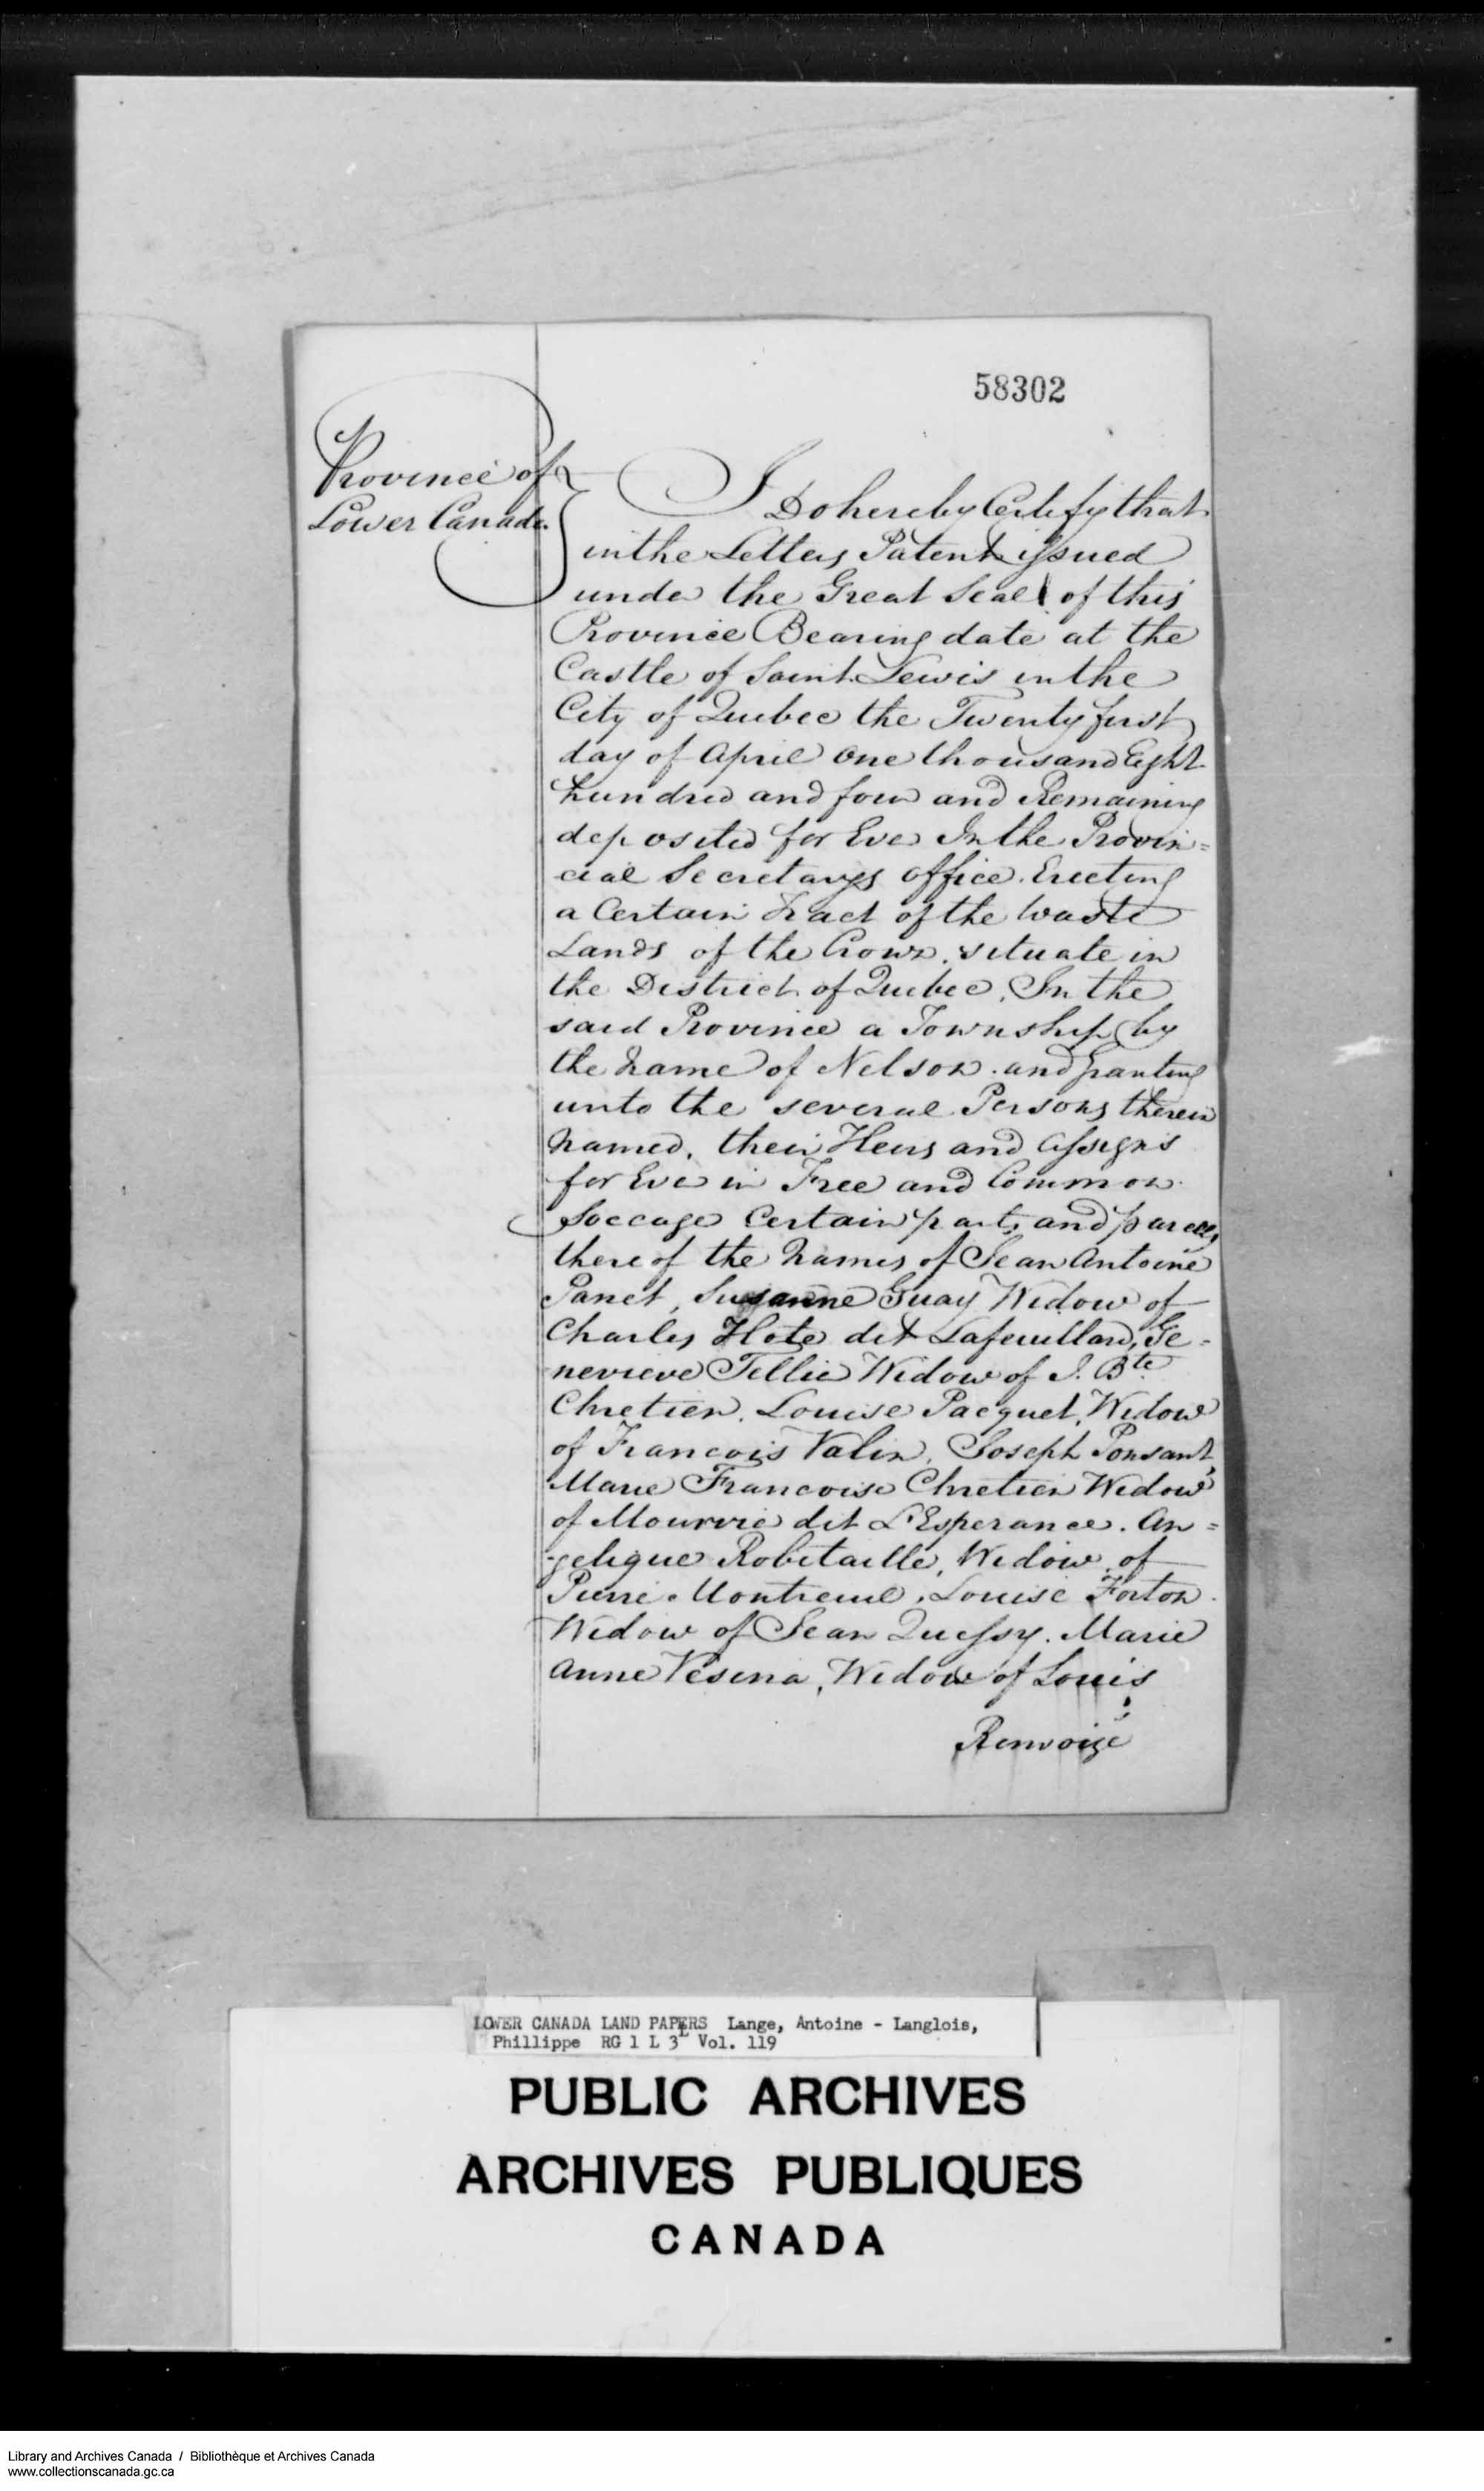 58302
Province of
Lower Canada
I Do hereby Certify that
in the Letters Patent issued
under the Great Seal of this
Province Bearing date at the
Castle of Saint Lewis in the
City of Quebec the Twenty first
day of April One thousand Eight
hundred and four and Remaining
deposited for Ever In the Provin=
cial Secretarys office. Erecting
a Certain Tract of the Waste
Lands of the Crown. situate in
the District of Quebec, In the
said Province a Township by
the Name of Nelson. and granting
unto the several Persons therein
Named, their Heirs and assigns
for Ever in Free and Common
Soccage Certain parts and parcels
thereof the Names of Jean Antoine
Panet, Susanne Guay Widow of
Charles Hote dit Lafeuillard, Ge=
nevieve Tellier Widow of J. Bte
Chretien, Louise Pacquet, Widow
of Francois Valin, Joseph Ponsant,
Marie Francoise Chretien Widow
of Mourrie dit L'Esperance. An=
gelique Robitaille, Widow of
Pierre Montreuil, Louise Forton
Widow of Jean Quessy. Marie
Anne Vesina, Widow of Louis
Renvoizé
LOWER CANADA LAND PAPERS Lange, Antoine - Langlois,
Phillippe RG 1 L 3L Vol. 119
PUBLIC ARCHIVES
ARCHIVES PUBLIQUES
CANADA
Library and Archives Canada / Bibliothèque et Archives Canada
www.collectionscanada.gc.ca